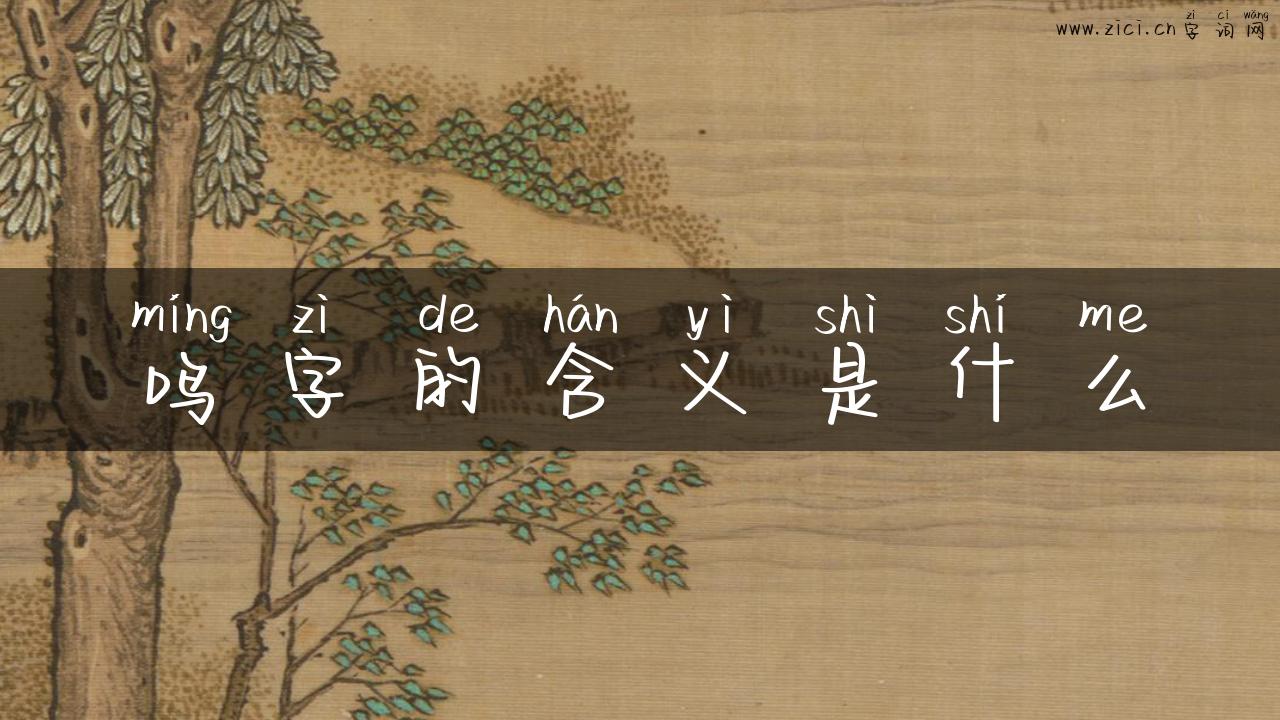 zì cí wǎng
www.zici.cn 字词网
míng zì de hán yì shì shí me
鸣字的含义是什么